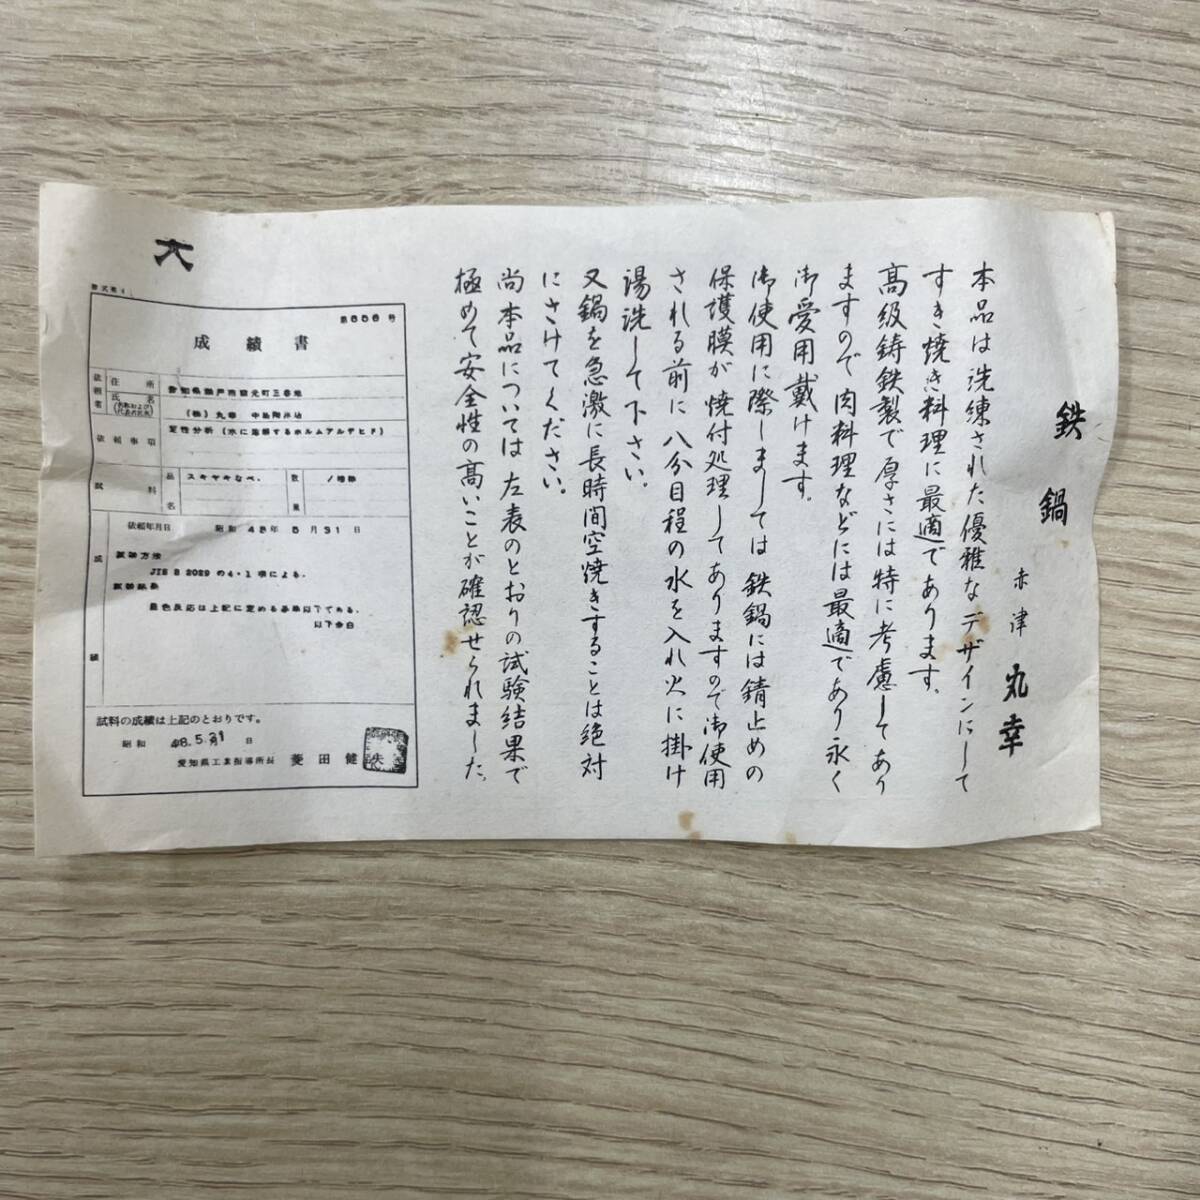 鉄鍋
赤津 丸幸
本品は洗練された優雅なデザインにして
すき焼き料理に最適であります。
高級鋳鉄製で厚さには特に考慮してあり
ますので肉料理などには最適であり永く
御愛用戴けます。
御使用に際しましては鉄鍋には錆止めの
保護膜が焼付処理してありますので御使用
される前に八分目程の水を入れ火に掛け
湯洗して下さい。
又鍋を急激に長時間空焼きすることは絶対
にさけてください。
尚本品については左表のとおりの試験結果で
極めて安全性の高いことが確認せられました。
大
第 号
成績書
依頼者
住所
愛知県瀬戸市 元町三番地
氏名
(名称および代表者氏名)
(株)丸幸
依頼事項
定性分析(水に溶解するホルムアルデヒド)
試料
品名
スキヤキなべ.
数量
依頼年月日 昭和 48年 5月31日
成績
試験方法
JIS S 2029 の4・1項による.
試験結果
呈色反応は上記に定める基準以下である.
以下余白
試料の成績は上記のとおりです。
昭和 48.5.31 月 日
愛知県工業指導所長 菱田健夫